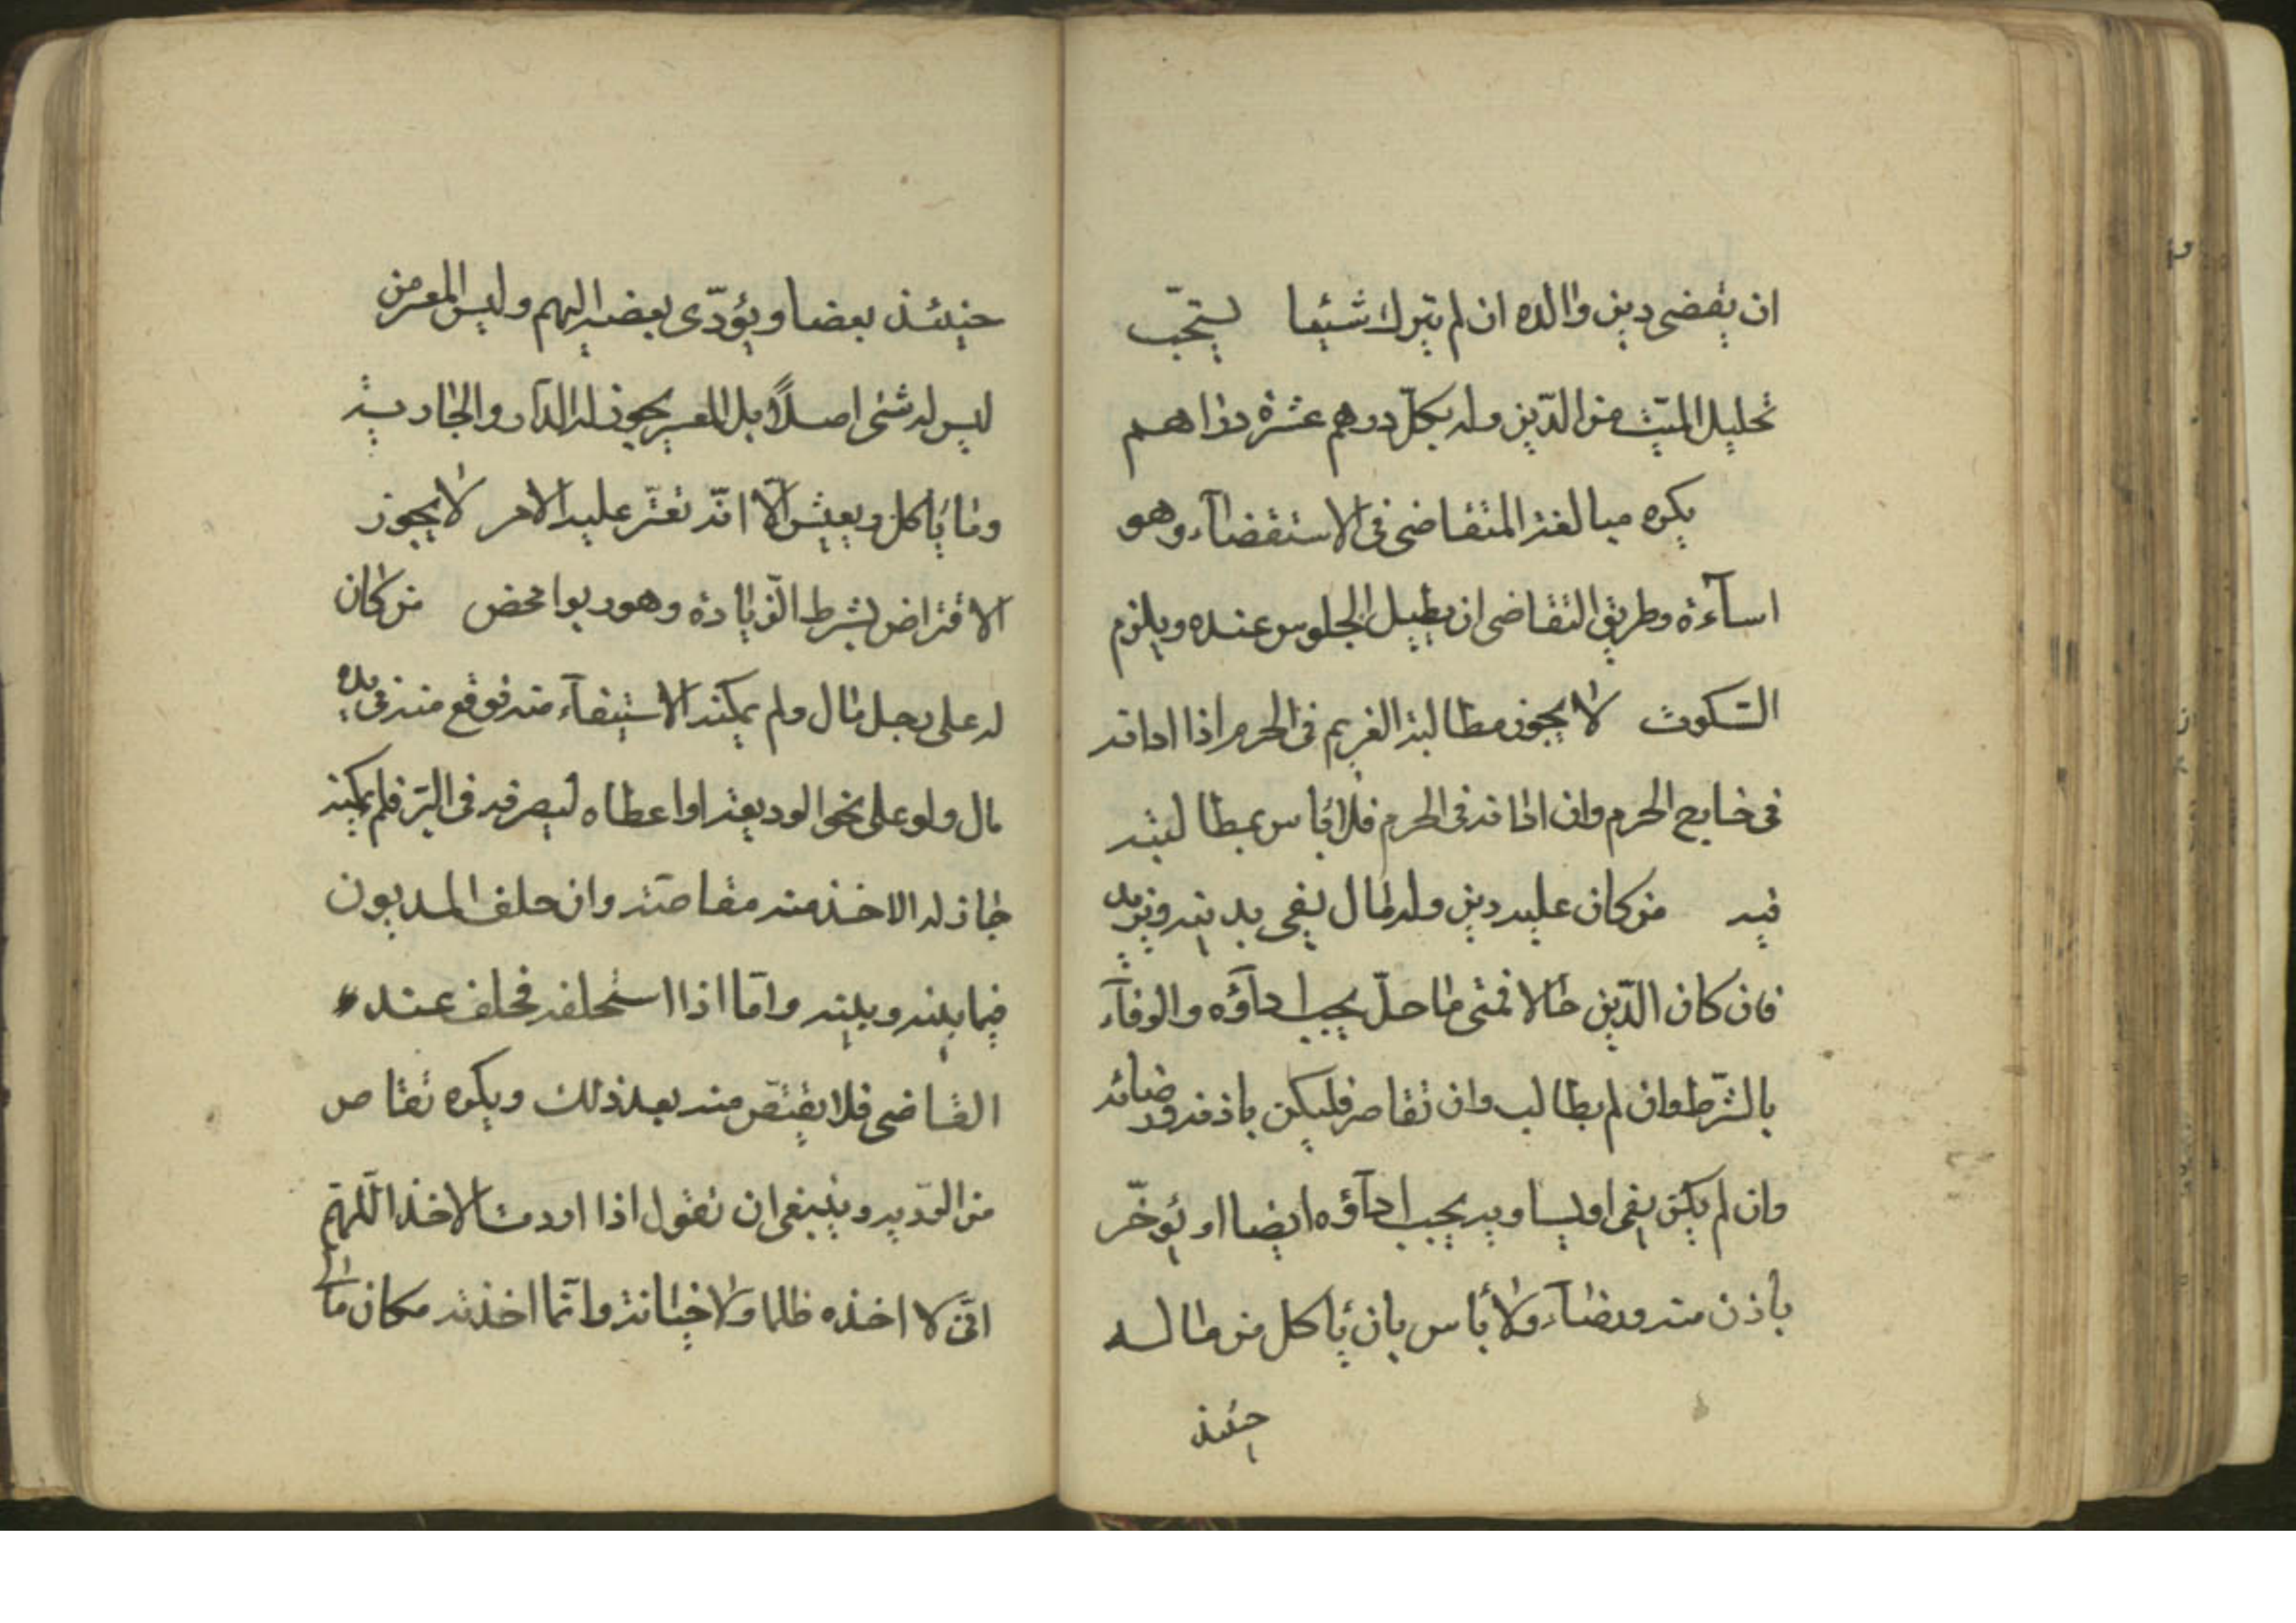 ان يقضى دين والده ان لم يترك شيئا يستحبّ
تحليل الميّت من الدّين وله بكلّ درهم عشرة دراهم
يكره مبالغة المتقاضى فى الاستقضآء وهو
اسآءة وطريق التقاضى ان يطيل الجلوس عنده ويلزم
السّكوت لا يجوز مطالبة الغريم فى الحرم اذا ادانه
فى خارج الحرم وان ادانه فى الحرم فلا باس بمطالبته
فيه من كان عليه دين وله مال يفى بدينه ويزيد
فان كان الدّين حالا فمتى ما حلّ يجب ادآؤه والوفآء
بالشّرط وان لم يطالب وان تقاصر فليكن باذنه ورضائه
وان لم يكن يفى او يساويه يجب ادآؤه ايضا او يؤخّر
باذن منه ورضآء ولا بأس بان يأكل من ماله
حينئذ
حينئذ بعضا ويؤدّى بعضه اليهم وليس المعسر من
ليس له شئى اصلاً بل المعسر يجوز له الدّار والجارية
وما يأكل ويعيش الّا انّه تعسّر عليه الامر لا يجوز
الاقتراض بشرط الزّيادة وهو ربوا محض من كان
له على رجل مال ولم يمكنه الاستيفآء منه فوقع منه فى يده
مال ولو على نحو الوديعة او اعطاه ليصرفه فى البرّ فلم يمكنه
جاز له الاخذ منه مقاصّة وان حلف المديون
فيما بينه وبينه وامّا اذا استحلفه فحلف عنده
القاضى فلا يقتصّ منه بعد ذلك ويكره تقاص
من الوديعه وينبغى ان تقول اذا اردت الاخذ اللّهمّ
انّى لا اخذه ظلما ولا خيانة وانّما اخذته مكان مالى